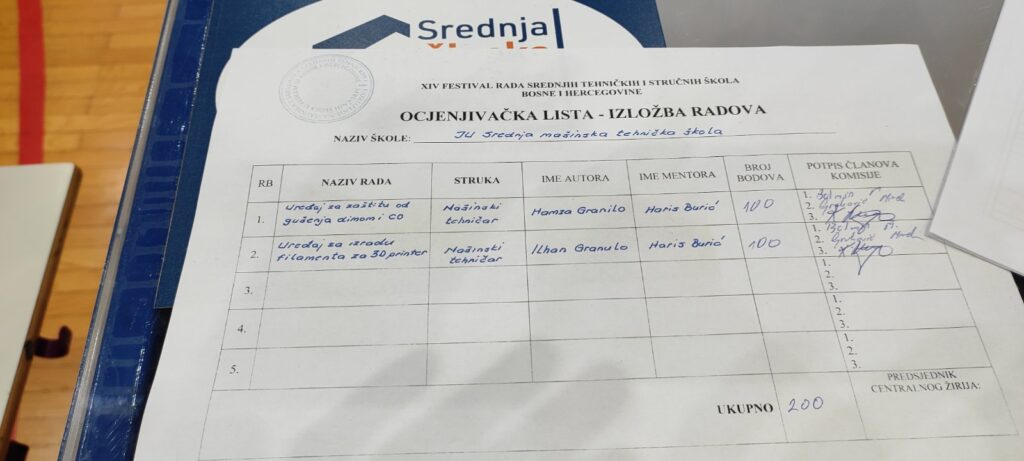 Srednja
XIV FESTIVAL RADA SREDNJIH TEHNIČKIH I STRUČNIH ŠKOLA
BOSNE I HERCEGOVINE
OCJENJIVAČKA LISTA - IZLOŽBA RADOVA
NAZIV ŠKOLE: JU Srednja mašinska tehnička škola
RB NAZIV RADA STRUKA IME AUTORA IME MENTORA BROJ BODOVA POTPIS ČLANOVA KOMISIJE
1. Uređaj za zaštitu od gušenja dimom i CO Mašinski tehničar Hamza Granilo Haris Burić 100 1. 2. 3.
2. Uređaj za izradu filamenta za 3D printer Mašinski tehničar Ilhan Granulo Haris Burić 100 1. 2. 3.
3. 1. 2. 3.
4. 1. 2. 3.
5. 1. 2. 3.
UKUPNO 200 PREDSJEDNIK CENTRALNOG ŽIRIJA: